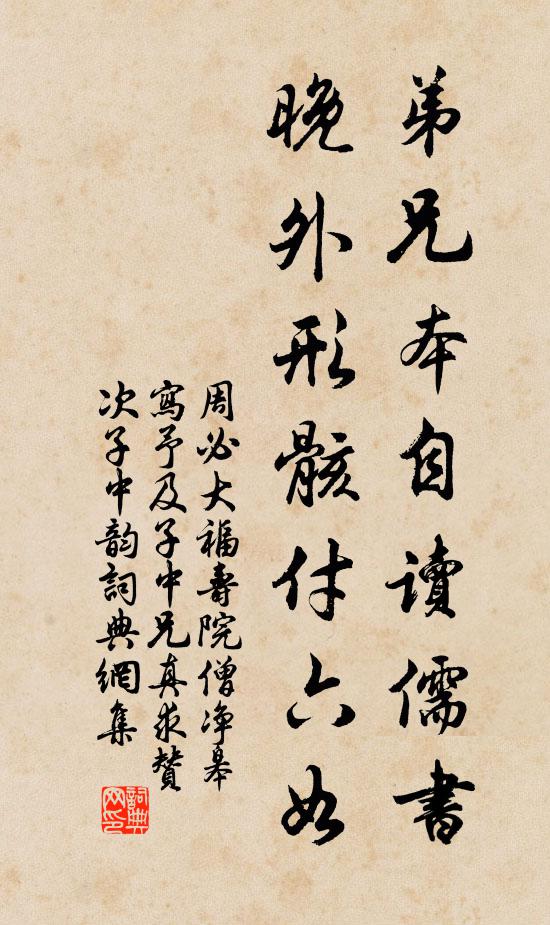 弟兄本自讀儒書
晚外形骸付六如
周必大福壽院僧净皋
寫予及子中兄真求贊
次子中韵詞典網集
詞典網印